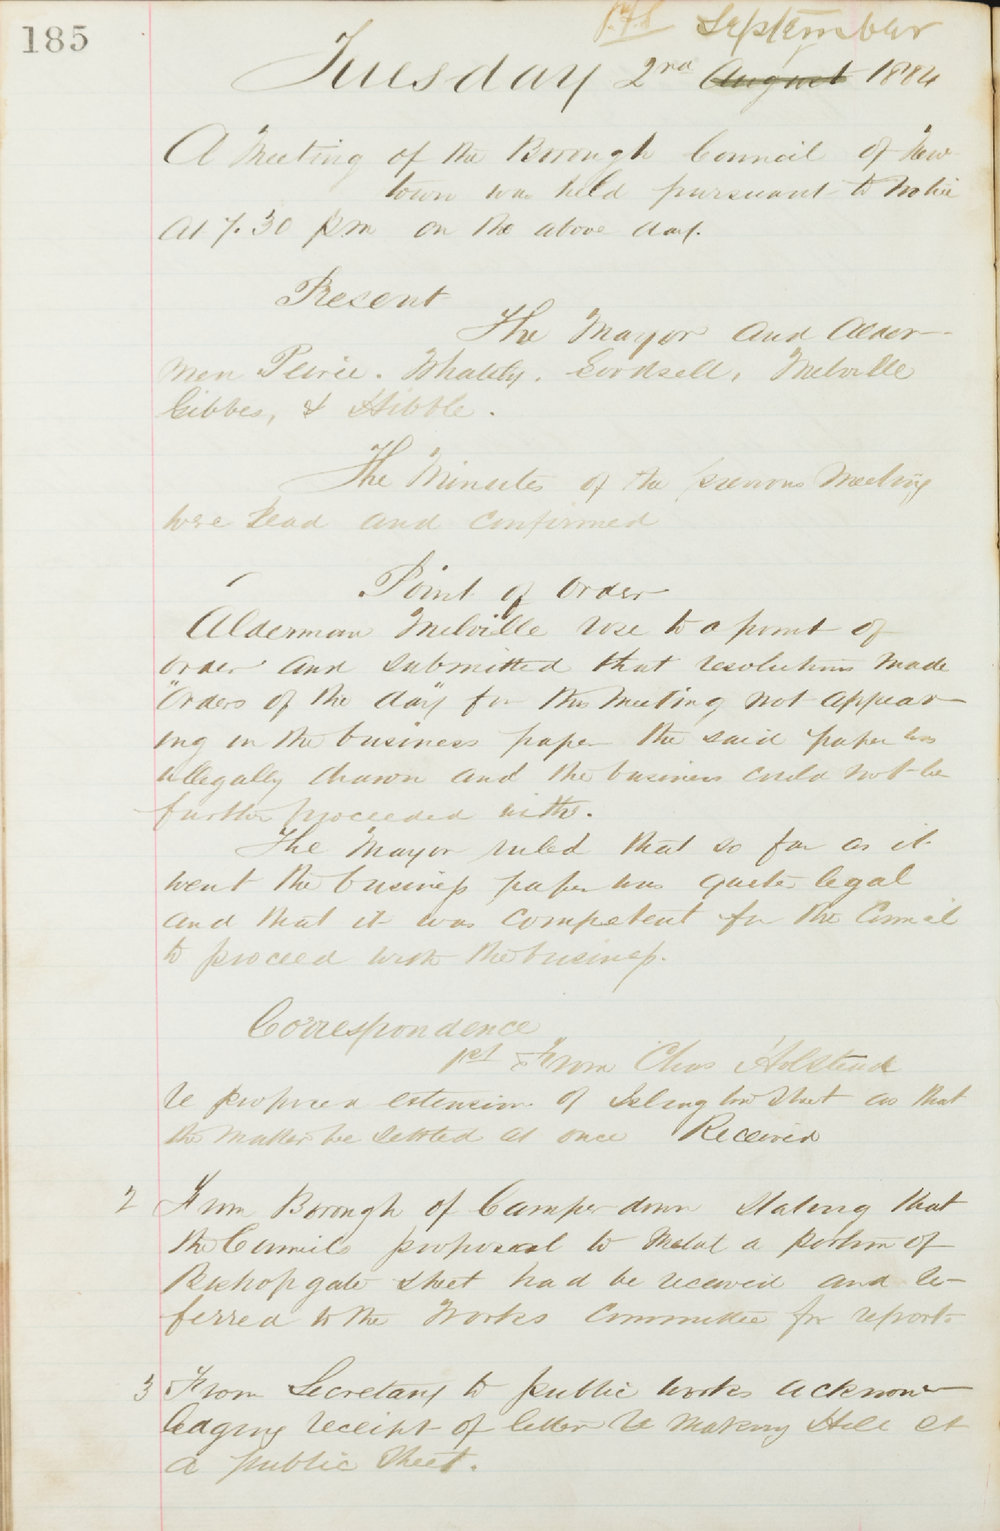 185
September
Tuesday 2nd August 1884
A Meeting of the Borough Council of New
town was held pursuant to Notice
at 7.30 pm on the above day.
Present
The Mayor and Alder-
men Peirie. Whately. Goodsell, Melville
Gibbes, & Hibble.
The Minutes of the previous Meeting
were Read and Confirmed
Point of Order
Alderman Melville rose to a point of
order and submitted that resolutions made
"Orders of the day" for this Meeting not appear-
ing in the business paper the said paper was
illegally drawn and the business could not be
further proceeded with.
The Mayor ruled that so far as it
went the business paper was quite legal
and that it was competent for the Council
to proceed with the business.
Correspondence
1st From Chas Holstead
re proposed extension of Islington Street as that
the matter be settled at once Received
2 From Borough of Camperdown Stating that
the Councils proposal to Metal a portion of
Bishopgate Street had be received and re-
ferred to the Works Committee for report.
3 From Secretary to public works acknow-
ledging receipt of letter re Making Hill St
a public Street.